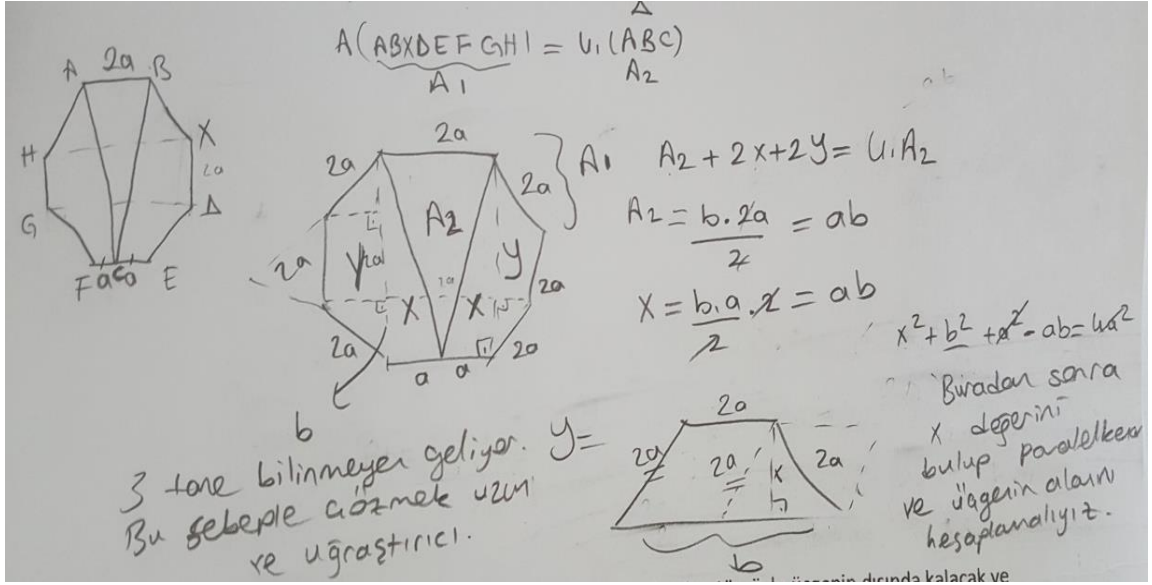 A(ABXDEFGH) = 4.(ABC)
A1
A2
A 2a B
H
X
2a
G
Δ
F a C a E
2a
2a
2a
A1
A2
2a
2a
y
2a
y
2a
X
X
2a
2a
a
a
b
A2 + 2x + 2y = 4.A2
A2 = b.2a / 2 = ab
X = b.a / 2 .2 = ab
x² + b² + a² - ab = 4a²
Buradan sonra
x değerini
bulup paralelkenar
ve üçgenin alanını
hesaplamalıyız.
3 tane bilinmeyen geliyor.
Bu sebeple çözmek uzun
ve uğraştırıcı.
y =
2a
2a
2a
x
2a
b
üçgenin dışında kalacak ve